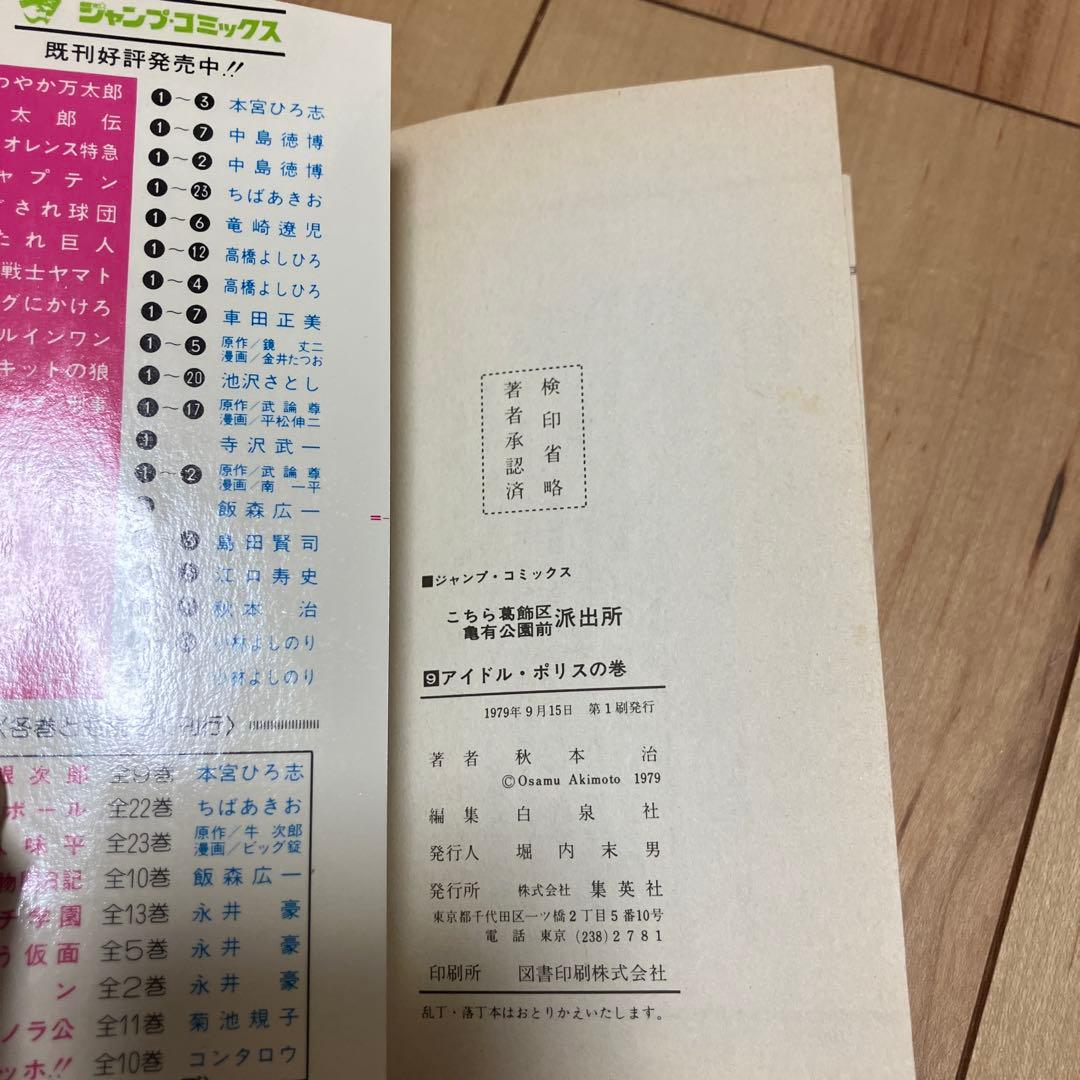 ジャンプ・コミックス
既刊好評発売中!!
つやか万太郎 1〜3 本宮ひろ志
太郎伝 1〜7 中島徳博
オレンス特急 1〜2 中島徳博
ャプテン 1〜23 ちばあきお
され球団 1〜6 竜崎遼児
たれ巨人 1〜12 高橋よしひろ
戦士ヤマト 1〜4 高橋よしひろ
グにかけろ 1〜7 車田正美
ルインワン 1〜5 原作/鏡丈二
漫画/金井たつお
キットの狼 1〜20 池沢さとし
刑事 1〜17 原作/武論尊
漫画/平松伸二
寺沢武一
1〜2 原作/武論尊
漫画/南一平
飯森広一
島田賢司
江口寿史
秋本治
小林よしのり
小林よしのり
銀次郎 全9巻 本宮ひろ志
ボール 全22巻 ちばあきお
味平 全23巻 原作/牛次郎
漫画/ビッグ錠
日記 全10巻 飯森広一
チ学園 全13巻 永井豪
う仮面 全5巻 永井豪
ン 全2巻 永井豪
ノラ公 全11巻 菊池規子
ッホ!! 全10巻 コンタロウ
検印省略
著者承認済
■ジャンプ・コミックス
こちら葛飾区
亀有公園前派出所
9アイドル・ポリスの巻
1979年9月15日 第1刷発行
著者 秋本治
©Osamu Akimoto 1979
編集 白泉社
発行人 堀内末男
発行所 株式会社 集英社
東京都千代田区一ツ橋2丁目5番10号
電話 東京 (238) 2781
印刷所 図書印刷株式会社
乱丁・落丁本はおとりかえいたします。